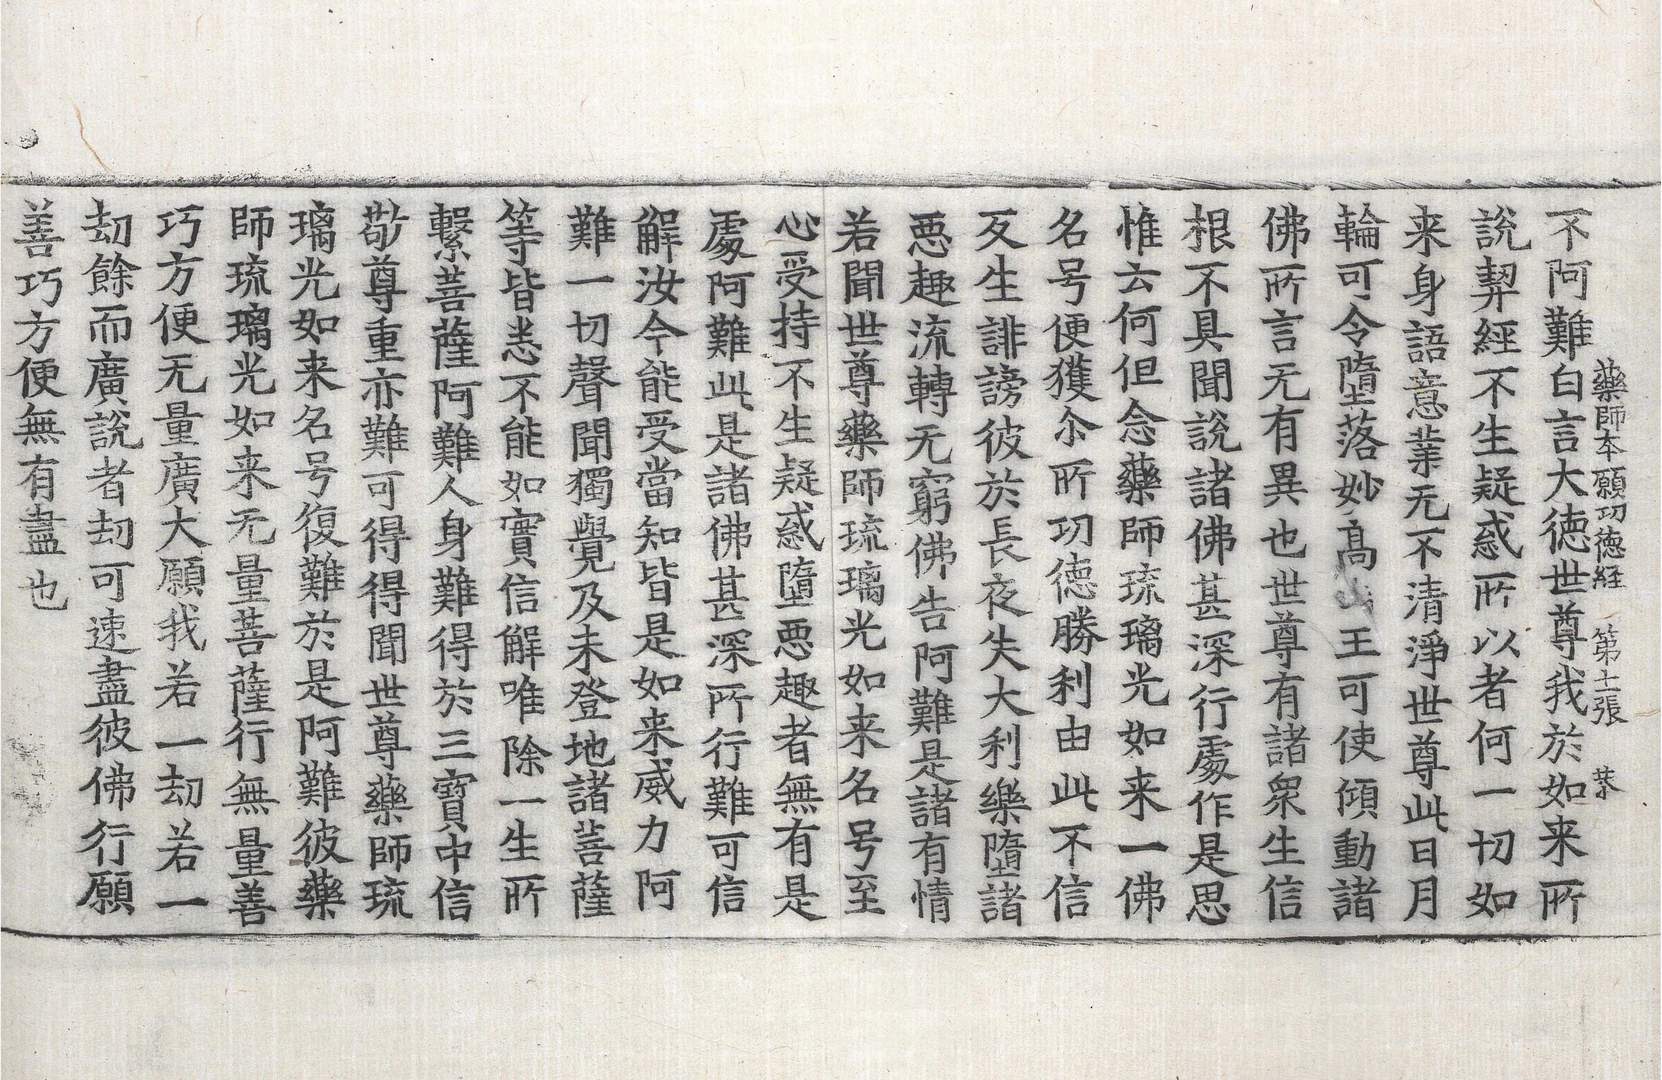 藥師本願功德経 第十一張 恭
不阿難白言大德世尊我於如来所
說契經不生疑惑所以者何一切如
来身語意業无不清淨世尊此日月
輪可令墮落妙高山王可使傾動諸
佛所言无有異也世尊有諸衆生信
根不具聞說諸佛甚深行處作是思
惟云何但念藥師琉璃光如来一佛
名号便獲尒所功德勝利由此不信
反生誹謗彼於長夜失大利樂墮諸
惡趣流轉无窮佛告阿難是諸有情
若聞世尊藥師琉璃光如来名号至
心受持不生疑惑墮惡趣者無有是
處阿難此是諸佛甚深所行難可信
解汝今能受當知皆是如来威力阿
難一切聲聞獨覺及未登地諸菩薩
等皆悉不能如實信解唯除一生所
繫菩薩阿難人身難得於三寶中信
敬尊重亦難可得得聞世尊藥師琉
璃光如来名号復難於是阿難彼藥
師琉璃光如来无量菩薩行無量善
巧方便无量廣大願我若一劫若一
劫餘而廣說者劫可速盡彼佛行願
善巧方便無有盡也